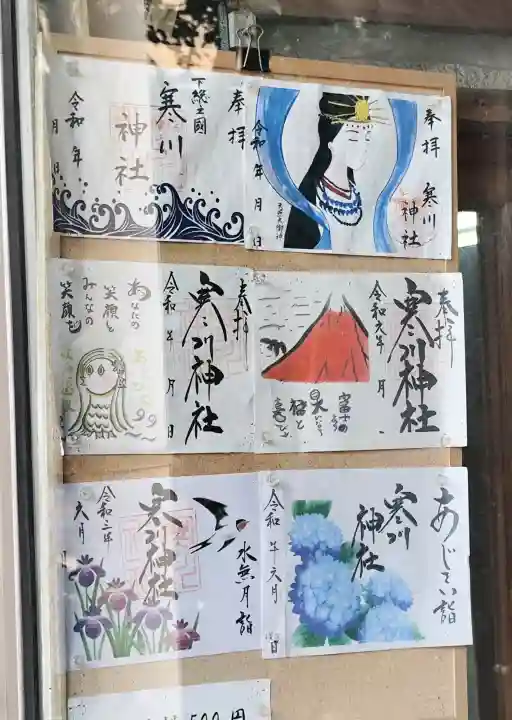 奉拝
下総之國
寒川
神社
令和 年
月 日
奉拝
寒川
神社
令和 年 月 日
天照大御神
奉拝
寒川神社
令和 年 月 日
あなたの
笑顔も
みんなの
笑顔も
奉拝
寒川神社
令和元年 月
富士の
水無月詣
寒川神社
令和三年
六月
あじさい詣
寒川
神社
令和 年六月
500円